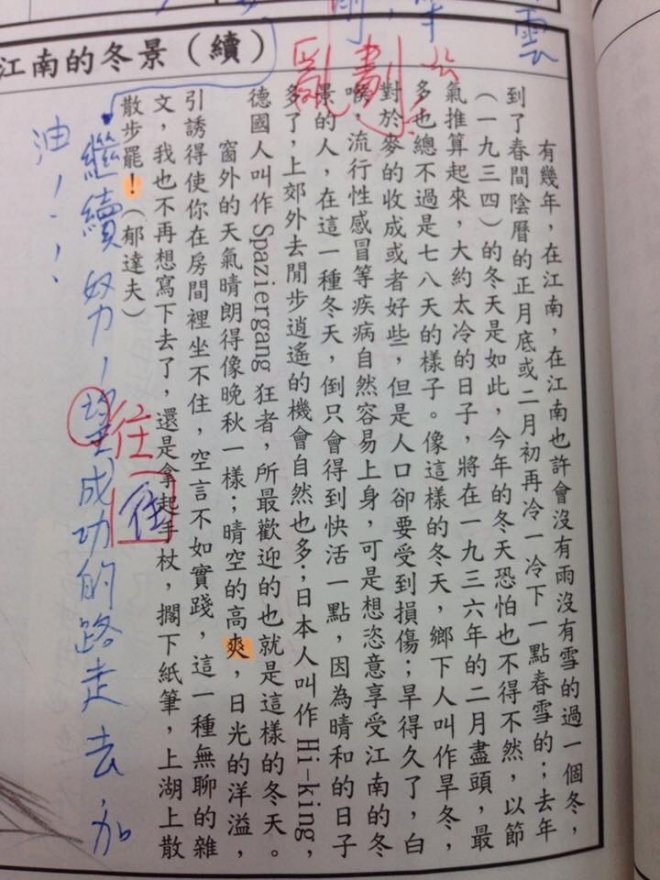 雲
江南的冬景（續）
亂劃
有幾年，在江南，在江南也許會沒有雨沒有雪的過一個冬，
到了春間陰曆的正月底或二月初再冷一冷下一點春雪的；去年
（一九三四）的冬天是如此，今年的冬天恐怕也不得不然，以節
氣推算起來，大約太冷的日子，將在一九三六年的二月盡頭，最
多也總不過是七八天的樣子。像這樣的冬天，鄉下人叫作旱冬，
對於麥的收成或者好些，但是人口卻要受到損傷；旱得久了，白
喉，流行性感冒等疾病自然容易上身，可是想恣意享受江南的冬
景的人，在這一種冬天，倒只會得到快活一點，因為晴和的日子
多了，上郊外去閒步逍遙的機會自然也多；日本人叫作 Hi-king,
德國人叫作 Spaziergang 狂者，所最歡迎的也就是這樣的冬天。
窗外的天氣晴朗得像晚秋一樣；晴空的高爽，日光的洋溢，
引誘得使你在房間裡坐不住，空言不如實踐，這一種無聊的雜
文，我也不再想寫下去了，還是拿起手杖，擱下紙筆，上湖上散
散步罷！（郁達夫）
往
往
繼續努力，成功的路走去，加
油！！！